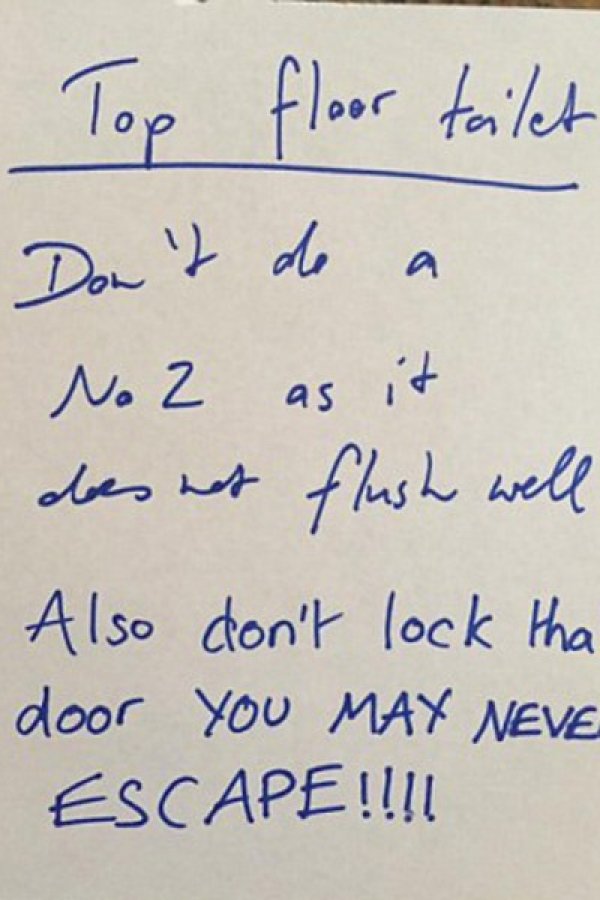 Top floor toilet
Don't do a
No 2 as it
does not flush well
Also don't lock tha
door YOU MAY NEVE
ESCAPE!!!!